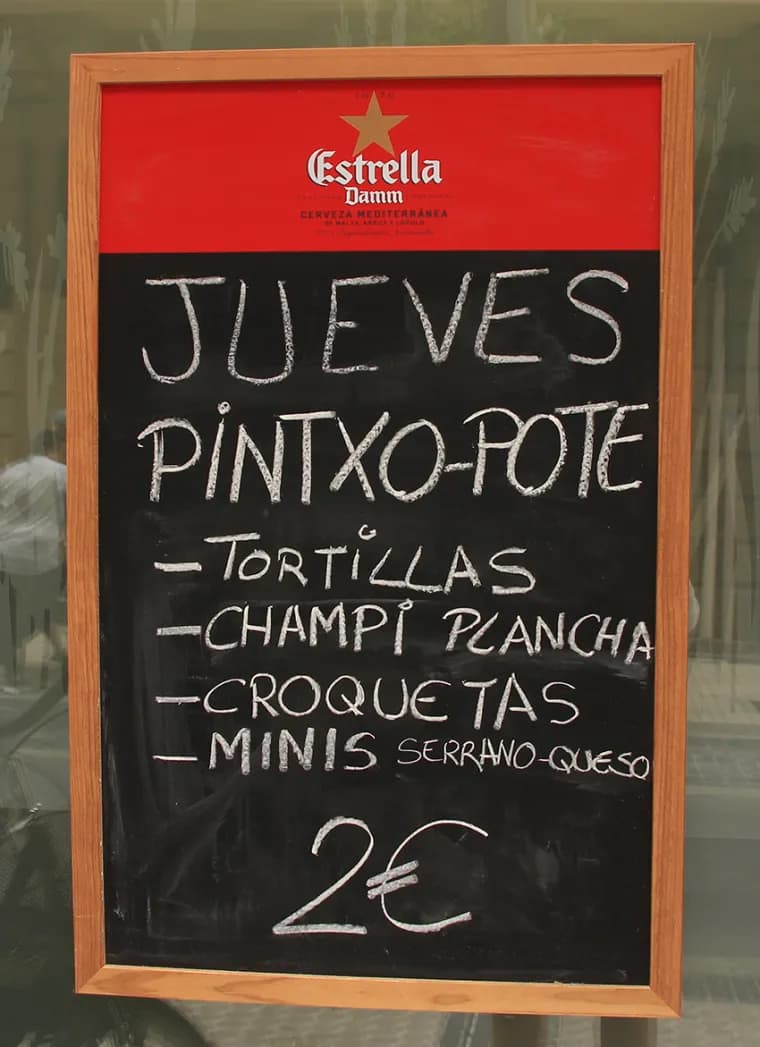 Estrella
Damm
CERVEZA MEDITERRÁNEA
DE MALTA, ARROZ Y LÚPULO
JUEVES
PINTXO-POTE
-TORTILLAS
-CHAMPI PLANCHA
-CROQUETAS
-MINIS SERRANO-QUESO
2€